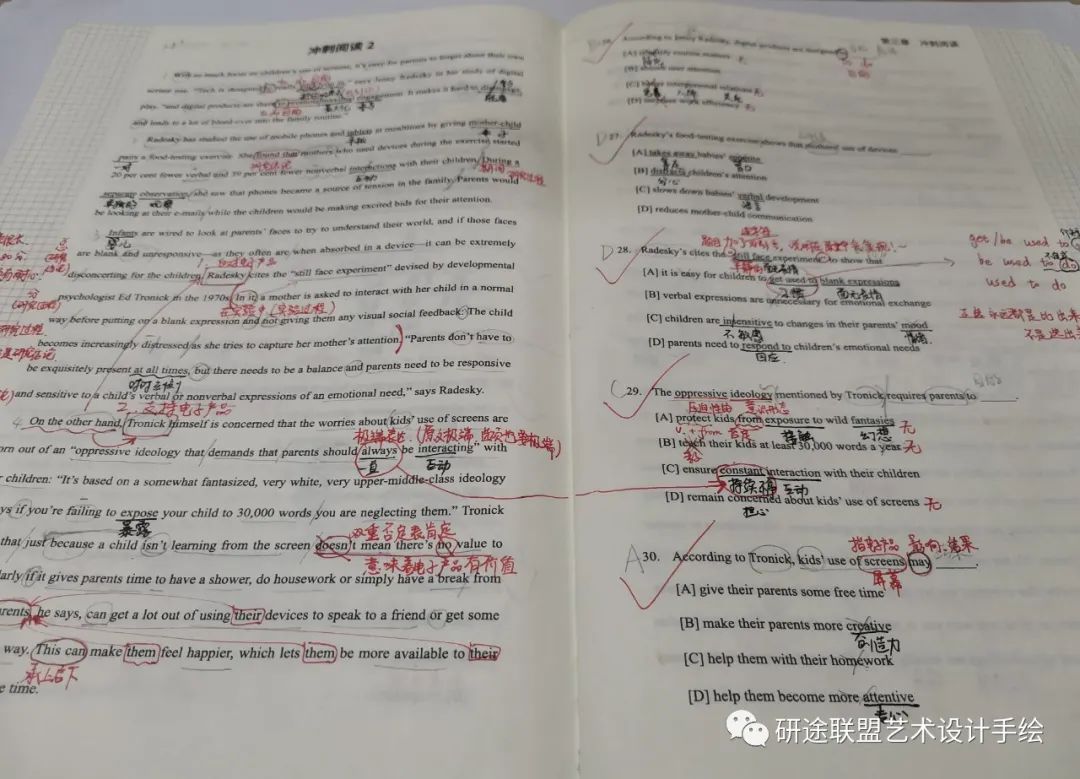 冲刺阅读 2
With so much focus on children's use of screens, it's easy for parents to forget about their own
screen use. "Tech is designed to really suck you in," says Jenny Radesky in her study of digital
play, "and digital products are there to promote maximal engagement. It makes it hard to disengage,
and leads to a lot of bleed-over into the family routine."
Radesky has studied the use of mobile phones and tablets at mealtimes by giving mother-child
pairs a food-testing exercise. She found that mothers who used devices during the exercise started
一对
20 per cent fewer verbal and 39 per cent fewer nonverbal interactions with their children. During a
互动
期间
研究过程
separate observation, she saw that phones became a source of tension in the family. Parents would
观察
be looking at their e-mails while the children would be making excited bids for their attention.
3 Infants are wired to look at parents' faces to try to understand their world, and if those faces
婴儿
are blank and unresponsive—as they often are when absorbed in a device—it can be extremely
disconcerting for the children. Radesky cites the "still face experiment" devised by developmental
psychologist Ed Tronick in the 1970s. In it, a mother is asked to interact with her child in a normal
在实验中(实验过程)
way before putting on a blank expression and not giving them any visual social feedback: The child
becomes increasingly distressed as she tries to capture her mother's attention. "Parents don't have to
be exquisitely present at all times, but there needs to be a balance and parents need to be responsive
时时刻刻
and sensitive to a child's verbal or nonverbal expressions of an emotional need," says Radesky.
2、支持电子产品
4 On the other hand, Tronick himself is concerned that the worries about kids' use of screens are
orn out of an "oppressive ideology that demands that parents should always be interacting" with
一直 互动
r children: "It's based on a somewhat fantasized, very white, very upper-middle-class ideology
ys if you're failing to expose your child to 30,000 words you are neglecting them." Tronick
暴露
双重否定表肯定
that just because a child isn't learning from the screen doesn't mean there's no value to
意味着电子产品有价值
larly if it gives parents time to have a shower, do housework or simply have a break from
rents, he says, can get a lot out of using their devices to speak to a friend or get some
way. This can make them feel happier, which lets them be more available to their
承上启下
e time.
第三章 冲刺阅读
According to Jenny Radesky, digital products are designed
[A] simplify routine matters 无
[B] absorb user attention
[C] better interpersonal relations 无
[D] increase work efficiency 无
D 27. Radesky's food-testing exercise shows that mothers' use of devices
[A] takes away babies' appetite
[B] distracts children's attention
分心
[C] slows down babies' verbal development
语言
[D] reduces mother-child communication
D 28. Radesky's cites the "still face experiment" to show that
[A] it is easy for children to get used to blank expressions
习惯 面无表情
[B] verbal expressions are unnecessary for emotional exchange
[C] children are insensitive to changes in their parents' mood
不敏感 情绪
[D] parents need to respond to children's emotional needs
回应
get/be used to
be used to do
used to do
C 29. The oppressive ideology mentioned by Tronick requires parents to
压迫性的 意识形态
[A] protect kids from exposure to wild fantasies 无
接触 幻想
[B] teach their kids at least 30,000 words a year 无
教
[C] ensure constant interaction with their children
持续不断 互动
[D] remain concerned about kids' use of screens 无
担心
A 30. According to Tronick, kids' use of screens may
屏幕
[A] give their parents some free time
[B] make their parents more creative
创造力
[C] help them with their homework
[D] help them become more attentive
专心
研途联盟艺术设计手绘